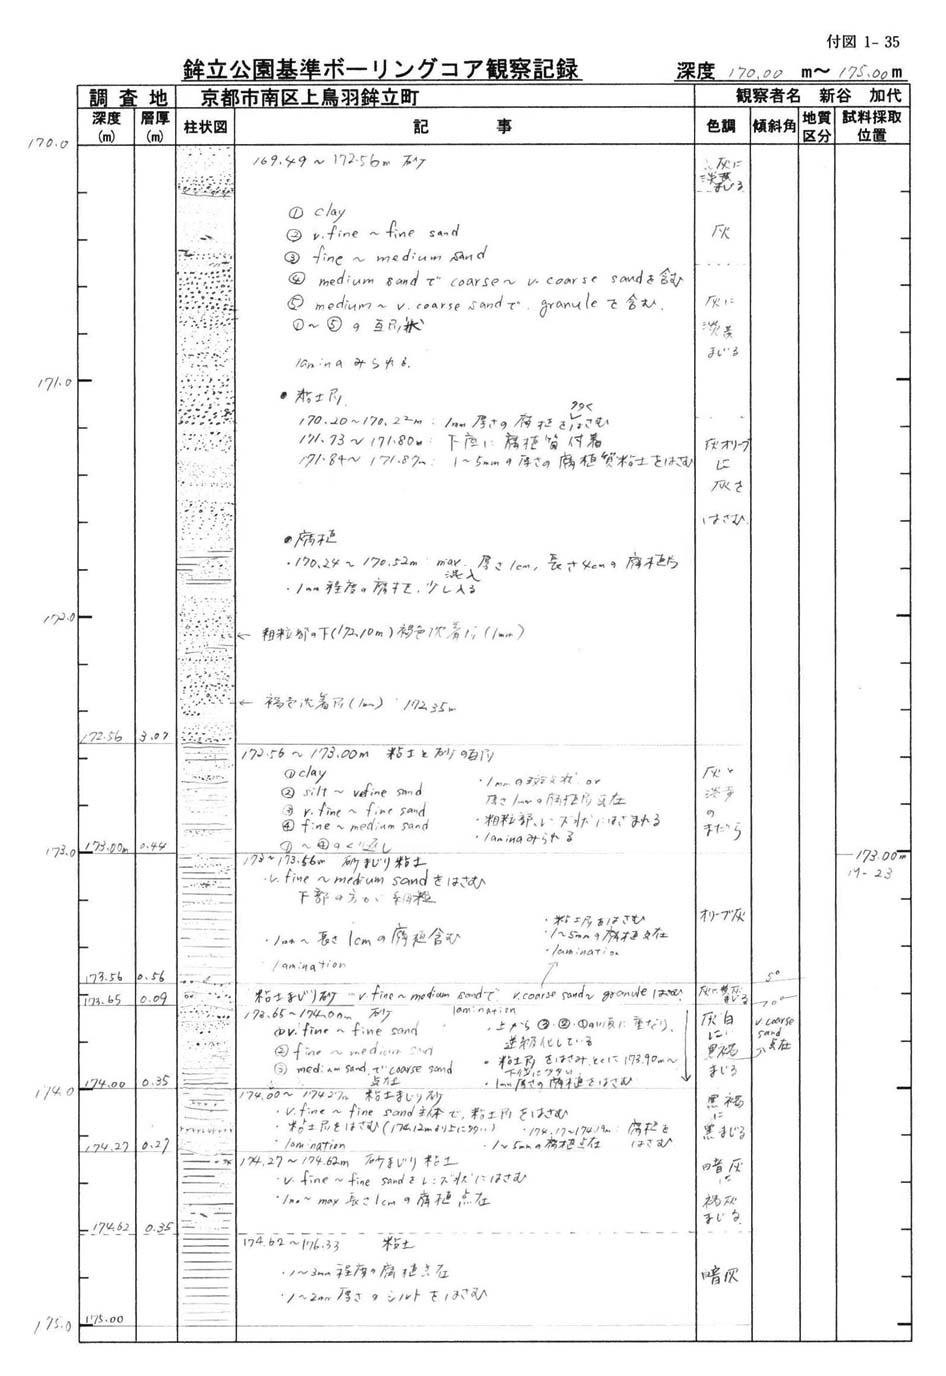 付図 1- 35
鉾立公園基準ボーリングコア観察記録
深度 170.00 m～ 175.00 m
調 査 地 京都市南区上鳥羽鉾立町 観察者名 新谷 加代
深度(m) 層厚(m) 柱状図 記 事 色調 傾斜角 地質区分 試料採取位置
170.0
169.49 ～ 172.56m 砂
灰に
淡黄
まじる
① clay
② v.fine ～ fine sand
灰
③ fine ～ medium sand
④ medium sand で coarse～ v. coarse sandを含む
⑤ medium ～ v.coarse sandで granuleを含む.
灰に
①～⑤の互層状
淡黄
まじる
laminaみられる.
171.0
● 粘土層
うすく
170.20～170.22m: 1mm厚さの腐植をはさむ
171.73～171.80m: 下底に腐植質付着
灰オリーブ
171.84～ 171.87m: 1～5mmの厚さの腐植質粘土をはさむ
に
灰を
はさむ
● 腐植
・170.24～170.52m: max. 厚さ1cm, 長さ4cmの腐植片
混入
・1mm程度の腐植、少し入る
172.0
← 粗粒部の下(172.10m)褐色沈着層(1mm)
← 褐色沈着層(1mm) 172.35m
172.56 3.07
172.56 ～ 173.00m 粘土と砂の互層
① clay
② silt ～ v.fine sand
③ v. fine ～ fine sand
④ fine ～ medium sand
①～④のくり返し
・1mmの斑点状 or
厚さ1mmの腐植層点在
・粗粒部、レンズ状にはさまれる
・laminaみられる
灰と
の
まだら
173.0
173.00m 0.44
173.00m
173～173.56m 砂まじり粘土
・v.fine～medium sandをはさむ
下部の方が細粒
・1mm～長さ1cmの腐植含む
・lamination
・粘土層をはさむ
・1～5mmの腐植点在
・lamination
オリーブ灰
173.56 0.56
5°
173.65 0.09
粘土まじり砂 v.fine～medium sandで v.coarse sand～ granuleはさむ
173.65～174.00m 砂 lamination
① v.fine ～ fine sand
② fine ～ medium sand
③ medium sandで coarse sand
点在
・上から③・②・①の順に重なり、
逆級化している
・粘土層をはさみ、とくに173.90m～
下位に多い
・1mm厚さの腐植をはさむ
灰白
に
黒褐
まじる
v.coarse
sand
点在
174.0
174.00 0.35
174.00～174.27m 粘土まじり砂
・v.fine～fine sand主体で、粘土層をはさむ
・粘土層をはさむ(174.12mより上に多い)
・174.17～174.19m: 腐植をはさむ
・lamination
・1～5mmの腐植点在
黒褐
に
黒まじる
174.27 0.27
174.27～174.62m 砂まじり粘土
・v.fine～fine sandをレンズ状にはさむ
・1mm～max長さ1cmの腐植点在
暗灰
に
褐灰
まじる
174.62 0.35
174.62～176.33 粘土
・1～3mm程度の腐植点在
・1～2mm厚さのシルトをはさむ
暗灰
175.0
175.00